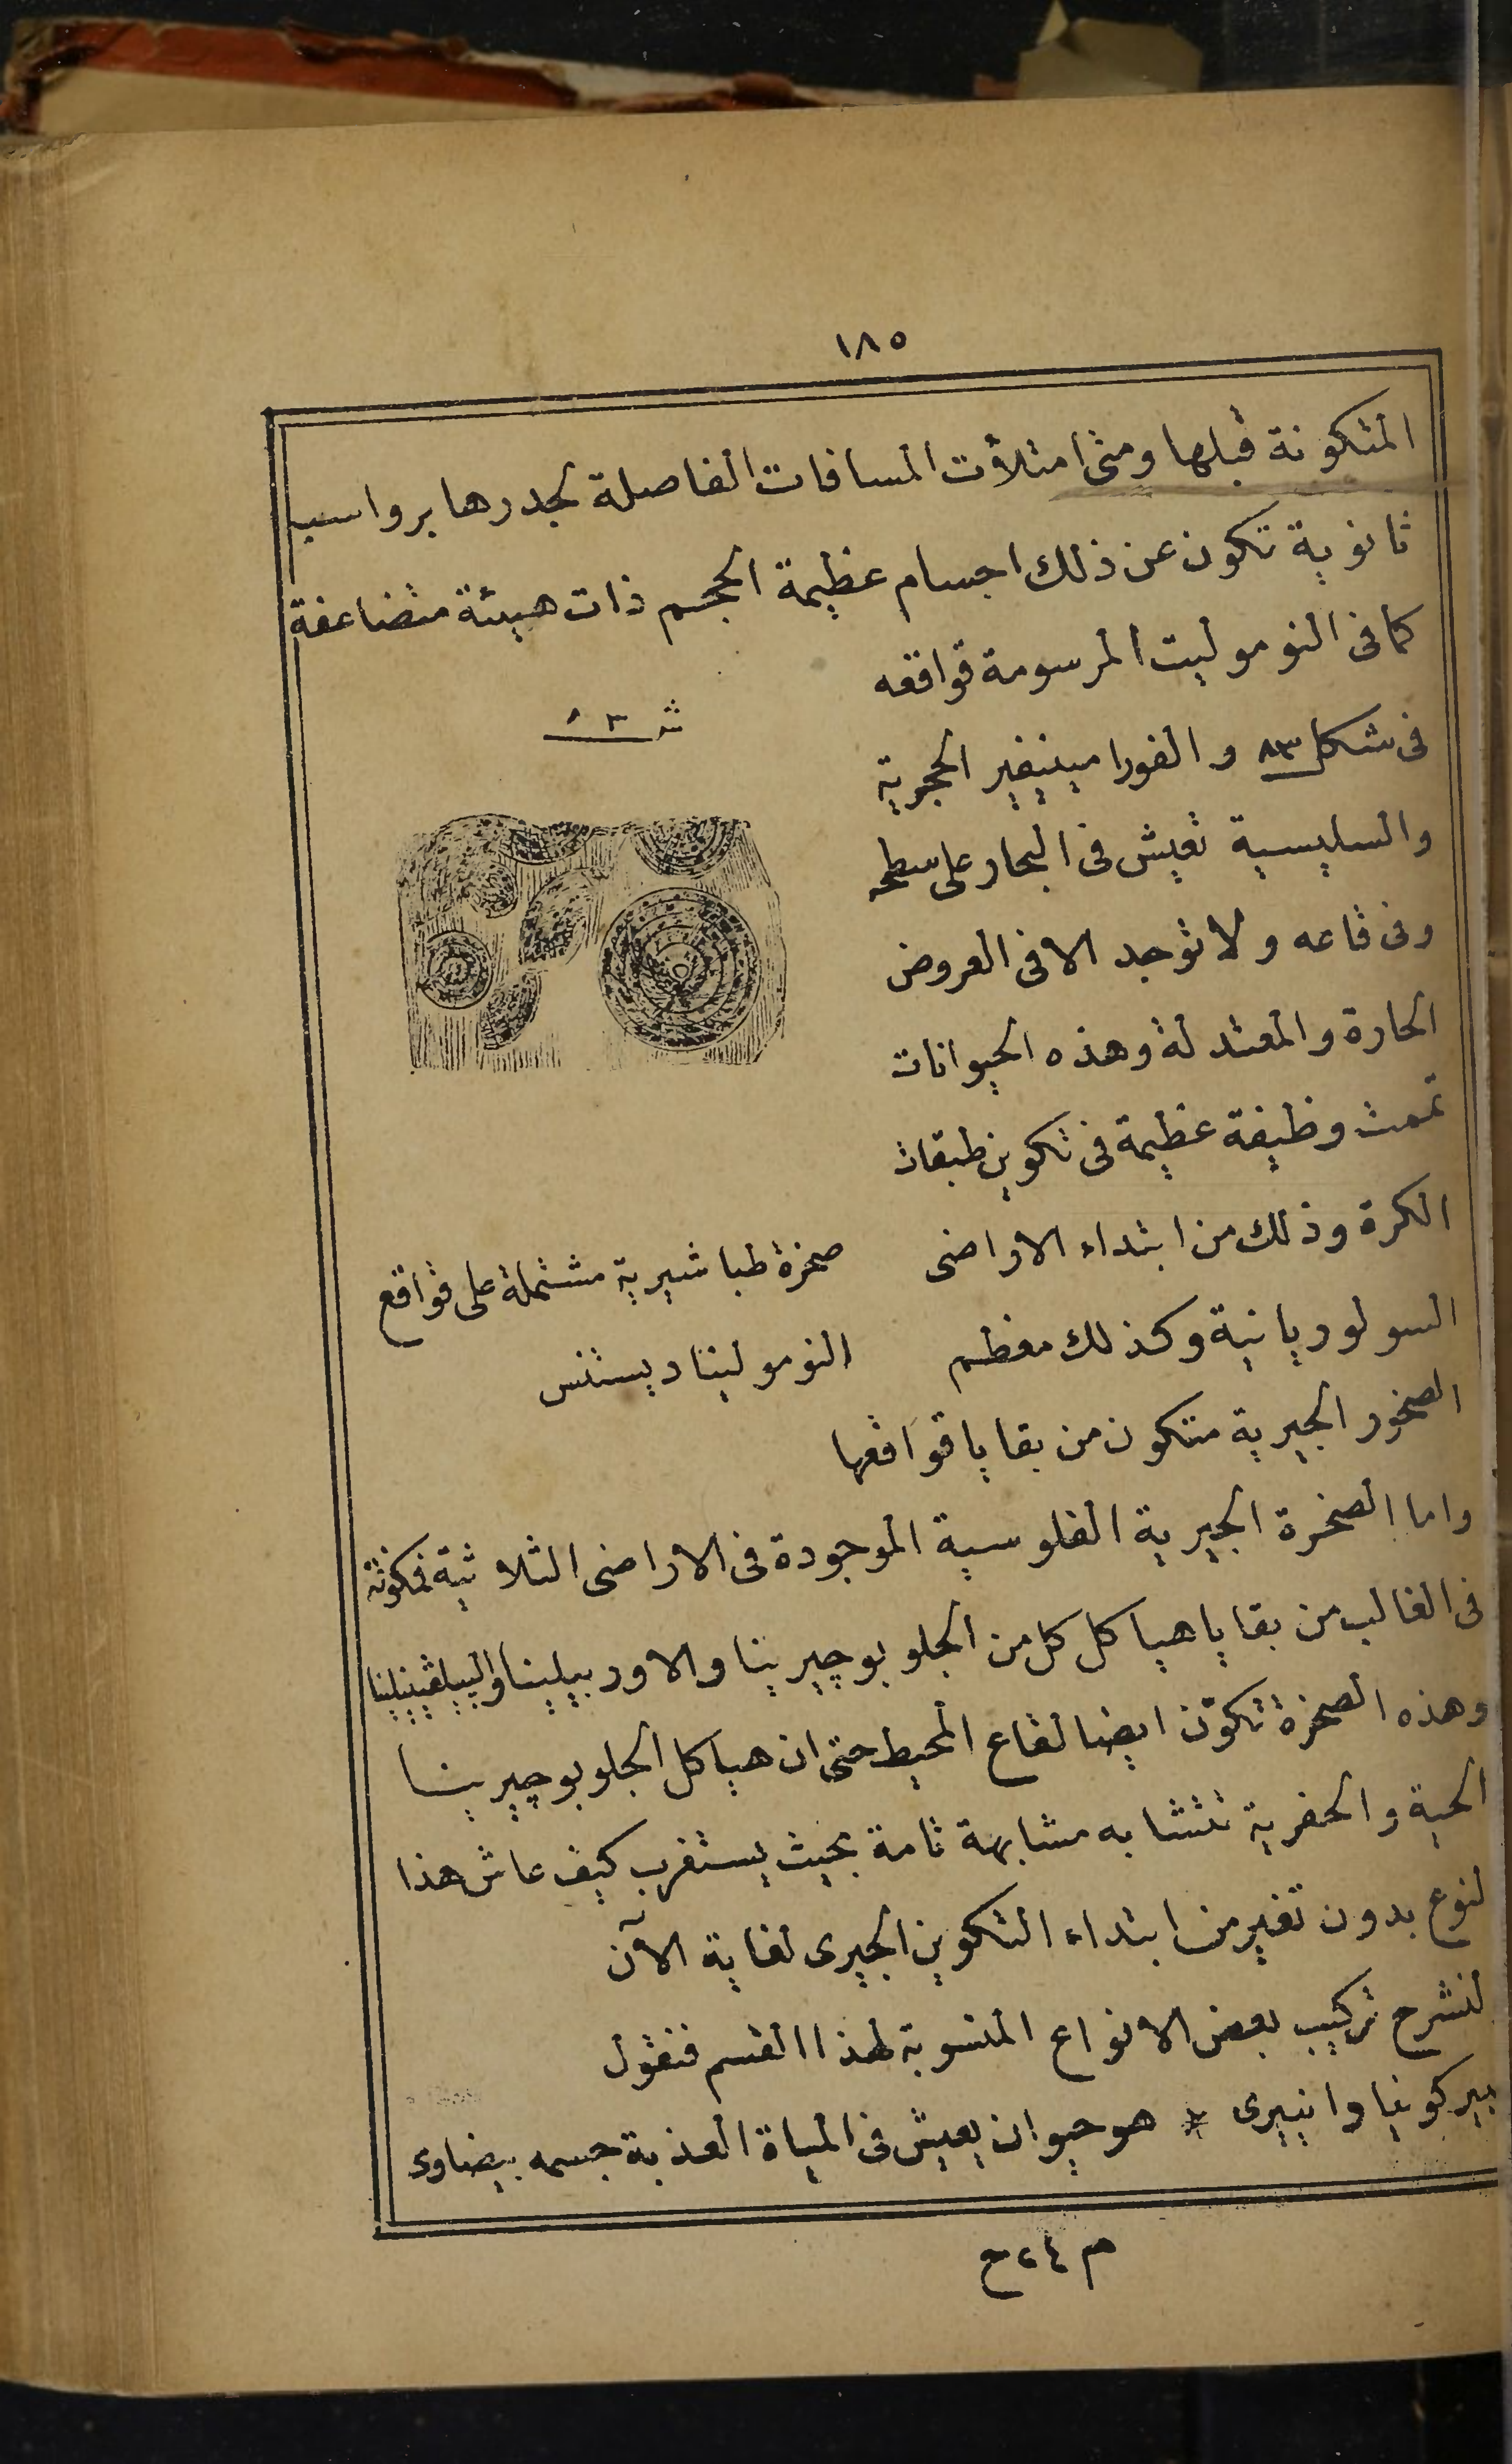 ١٨٥
المتكونة قبلها ومتى امتلأت المسافات الفاصلة لجدرها برواسب
ثانوية تكون عن ذلك اجسام عظيمة الحجم ذات هيئة متضاعفة
كما فى النوموليت المرسومة قواقعه
فى شكل ٨٣ والفورامينيفير الحجرية
والسليسية تعيش فى البحار على سطحه
وفى قاعه ولا توجد الا فى العروض
الحارة والمعتدلة وهذه الحيوانات
تممت وظيفة عظيمة فى تكوين طبقات
الكرة وذلك من ابتداء الاراضى
السولوريانية وكذلك معظم
الصخور الجيرية متكون من بقايا قواقعها
شـ ٨٣
صخرة طباشيرية مشتملة على قواقع
النوموليتا ديستنس
واما الصخرة الجيرية الفلوسية الموجودة فى الاراضى الثلاثية فمكونة
فى الغالب من بقايا هياكل كل من الجلوبوچيرينا والاوربيلينا والبيلڤينيلينا
وهذه الصخرة تكوّن ايضا لقاع المحيط حتى ان هياكل الجلوبوچيرينا
الحية والحفرية تتشابه مشابهة تامة بحيث يستغرب كيف عاش هذا
لنوع بدون تغير من ابتداء التكوين الجيرى لغاية الآن
لنشرح تركيب بعض الانواع المنسوبة لهذا القسم فنقول
بيركونيا وانييرى * هو حيوان يعيش فى المياة العذبة جسمه بيضاوى
م ٢٤ ح